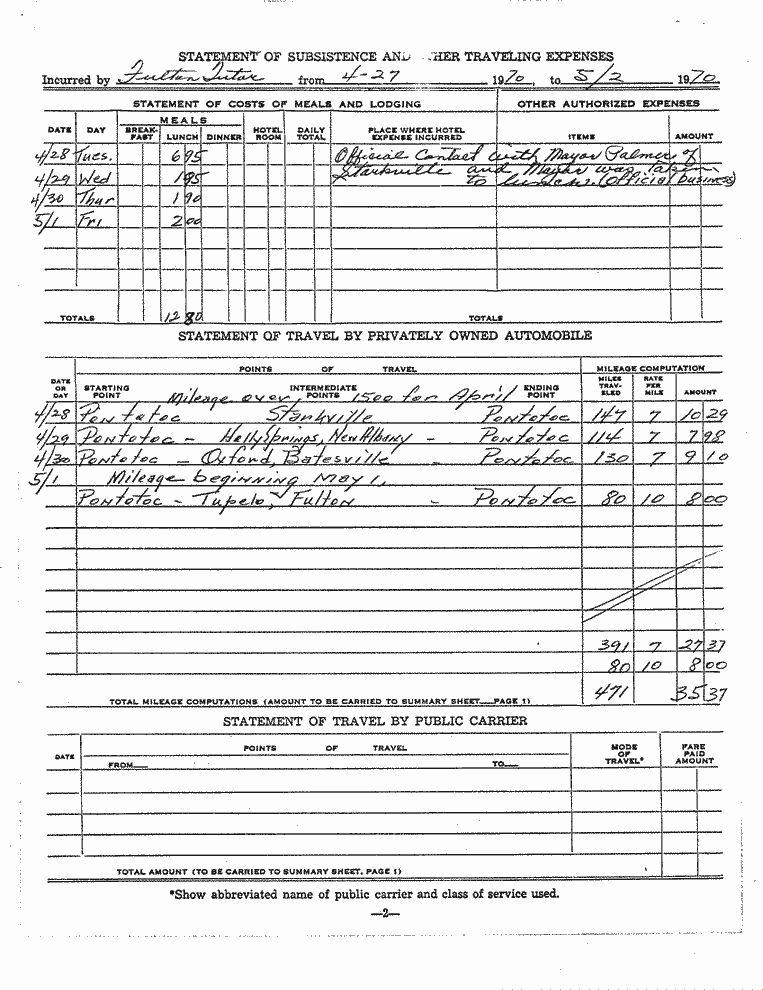 STATEMENT OF SUBSISTENCE AND HER TRAVELING EXPENSES
Incurred by Fulton Tutor from 4-27 1970, to 5/2 1970
STATEMENT OF COSTS OF MEALS AND LODGING OTHER AUTHORIZED EXPENSES
DATE DAY MEALS BREAK-FAST LUNCH DINNER HOTEL ROOM DAILY TOTAL PLACE WHERE HOTEL EXPENSE INCURRED ITEMS AMOUNT
4/28 Tues. 6 95 Official Contact with Mayor Palmer of
4/29 Wed 1 95 Starkville and Mayor was taken
to lunch. (Official business)
4/30 Thur 1 90
5/1 Fri 2 00
TOTALS 12 80 TOTALS
STATEMENT OF TRAVEL BY PRIVATELY OWNED AUTOMOBILE
POINTS OF TRAVEL MILEAGE COMPUTATION
DATE OR DAY STARTING POINT INTERMEDIATE POINTS ENDING POINT MILES TRAV-ELED RATE PER MILE AMOUNT
Mileage over 1500 for April
4/28 Pontotoc Starkville Pontotoc 147 7 10 29
4/29 Pontotoc - Holly Springs, New Albany - Pontotoc 114 7 7 98
4/30 Pontotoc - Oxford, Batesville - Pontotoc 130 7 9 10
5/1 Mileage beginning May 1,
Pontotoc - Tupelo, Fulton - Pontotoc 80 10 8 00
391 7 27 37
80 10 8 00
TOTAL MILEAGE COMPUTATIONS (AMOUNT TO BE CARRIED TO SUMMARY SHEET, PAGE 1) 471 35 37
STATEMENT OF TRAVEL BY PUBLIC CARRIER
DATE POINTS OF TRAVEL MODE OF TRAVEL* FARE PAID AMOUNT
FROM TO
TOTAL AMOUNT (TO BE CARRIED TO SUMMARY SHEET, PAGE 1)
*Show abbreviated name of public carrier and class of service used.
—2—